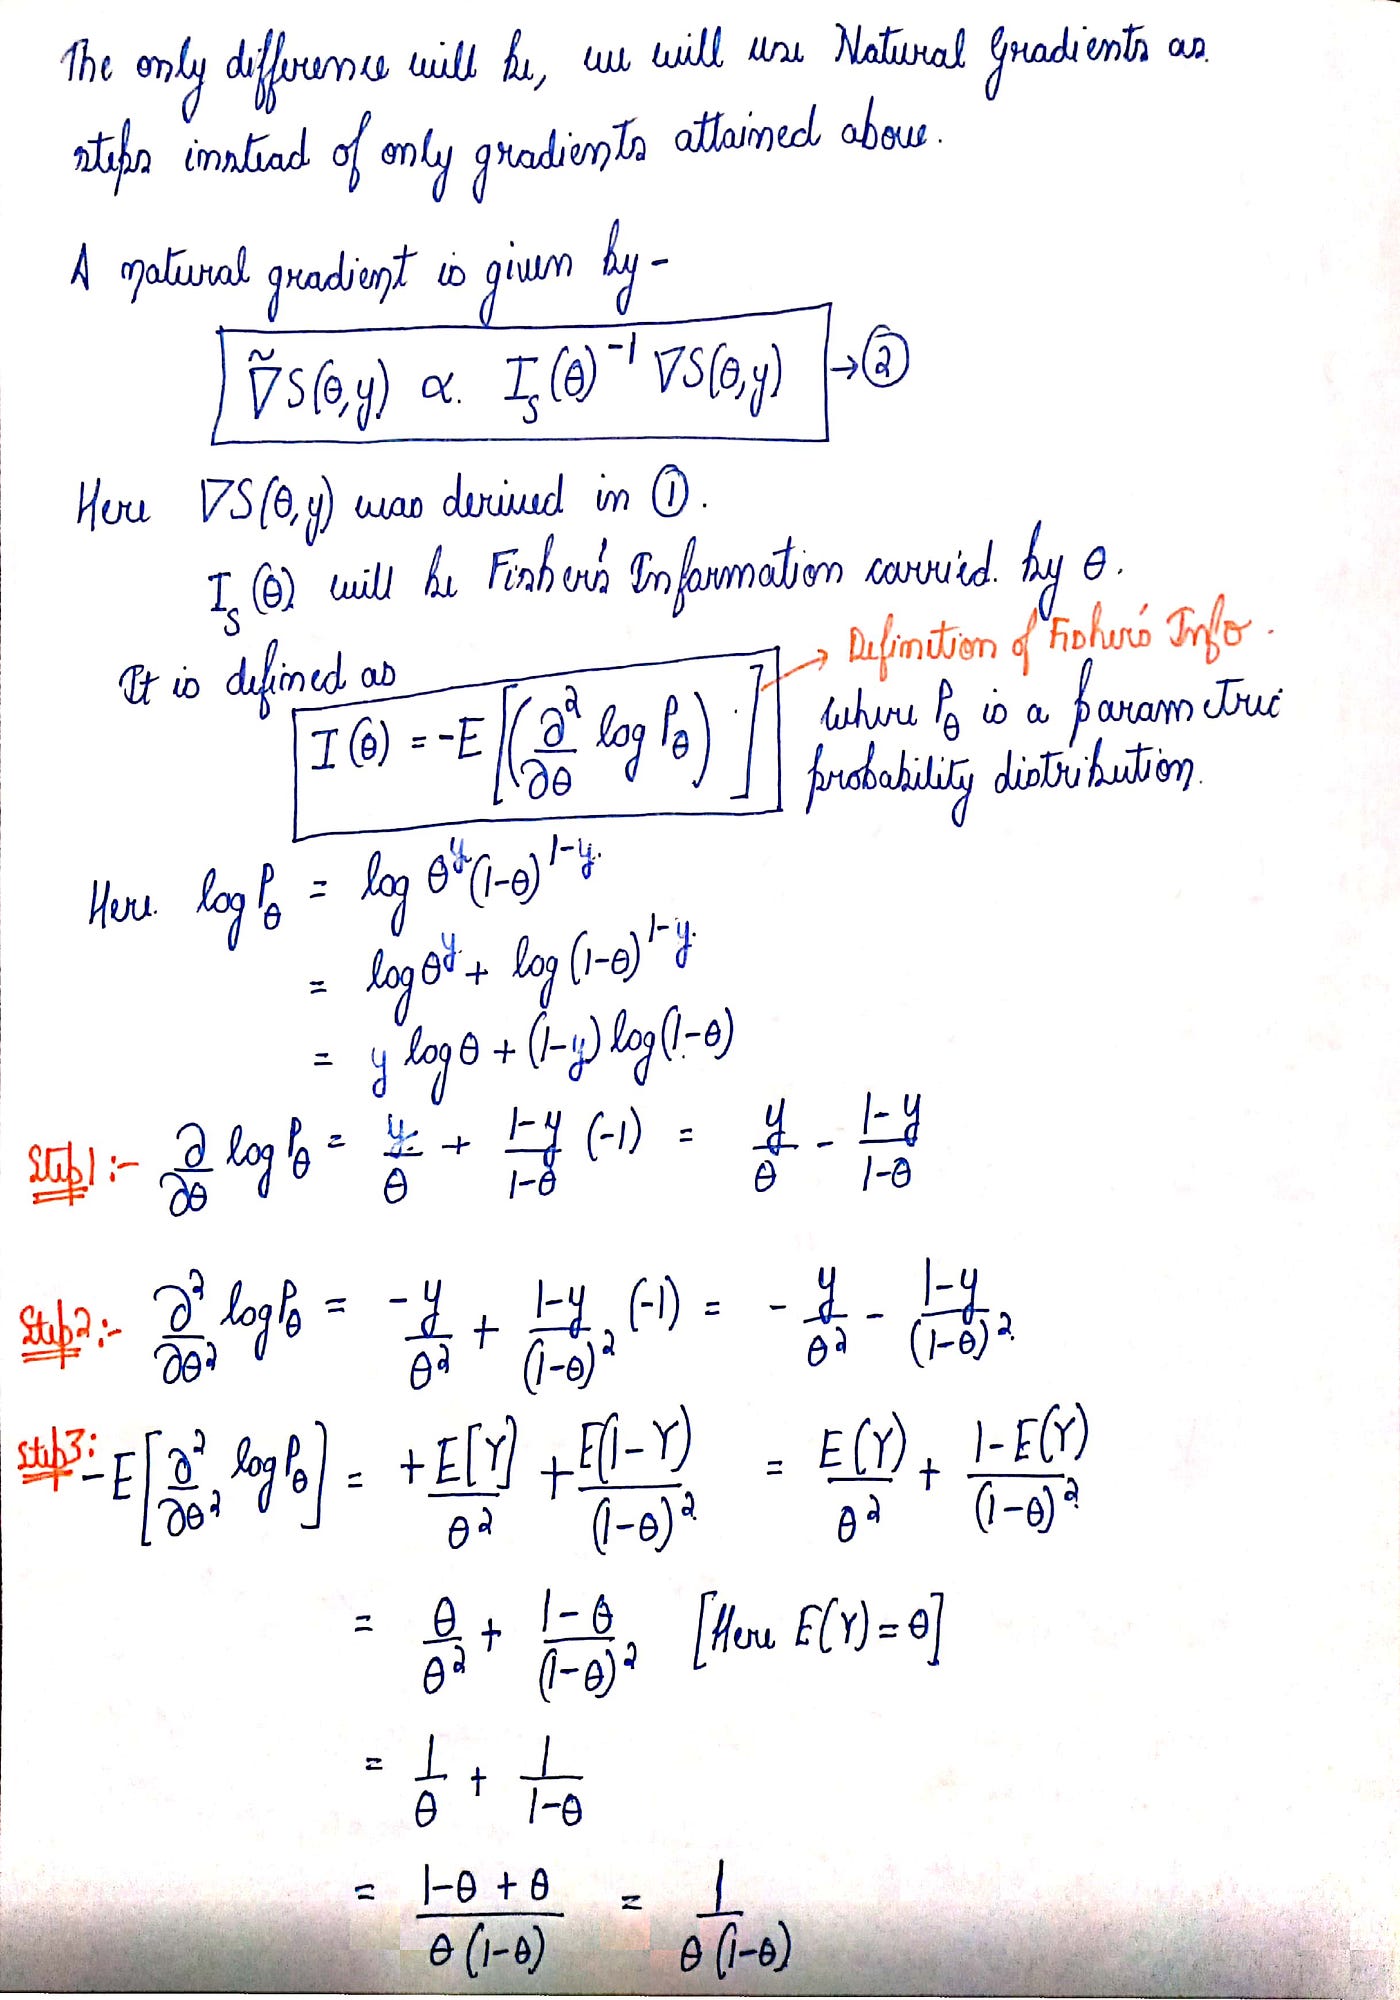 The only difference will be, we will use Natural Gradients as
steps instead of only gradients attained above.
A natural gradient is given by -
∇̃S(θ,y) ∝. I_S(θ)^-1 ∇S(θ,y) → ②
Here ∇S(θ,y) was derived in ①.
I_S(θ) will be Fisher's Information carried by θ.
→ Definition of Fisher's Info.
It is defined as
I(θ) = -E[(∂²/∂θ log P_θ)]
where P_θ is a parametric
probability distribution.
Here log P_θ = log θ^y (1-θ)^1-y.
= log θ^y + log (1-θ)^1-y.
= y log θ + (1-y) log(1-θ)
Step1:- ∂/∂θ log P_θ = y/θ + 1-y/1-θ (-1) = y/θ - 1-y/1-θ
Step2:- ∂²/∂θ² log P_θ = -y/θ² + 1-y/(1-θ)² (-1) = -y/θ² - 1-y/(1-θ)²
Step3: -E[∂²/∂θ² log P_θ] = +E[Y]/θ² + E(1-Y)/(1-θ)² = E(Y)/θ² + 1-E(Y)/(1-θ)²
= θ/θ² + 1-θ/(1-θ)² [Here E(Y) = θ]
= 1/θ + 1/1-θ
= 1-θ+θ/θ(1-θ) = 1/θ(1-θ)